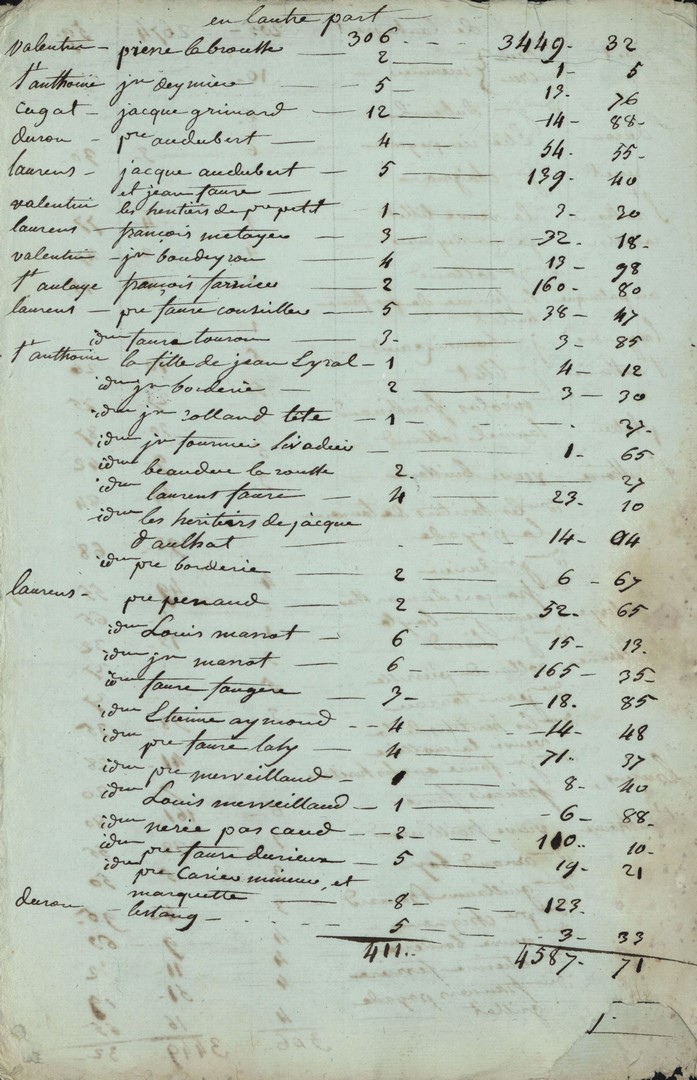 en lautre part
306 - 3449 - 32
valentin - pierre labrousse — 2 — 1 - 5
st anthoine jn deymier — 5 — 13 - 76
cugat - jacque grimard — 12 — 14 - 88
duron - pre audubert — 4 — 54 - 55
laurens - jacque audubert — 5 — 139 - 40
et jean faure —
valentin les heritiers de pre petit 1 — 3 - 30
laurens françois metayer — 3 — 32 - 18
valentin - jn boudeyron — 4 — 13 - 98
st aulaye françois farnier — 2 — 160 - 80
laurens - pre faure conseiller — 5 — 38 - 47
idm faure touron — 3 — 3 - 85
st anthoine la fille de jean Lyral - 1 — 4 - 12
idm jn borderie — 2 — 3 - 30
idm jn rolland tete — 1 — . 27
idm jn fournier livadier — 1 - 65
idm beaudere la rousse 2 . 27
idm laurent faure — 4 — 23 - 10
idm les heritiers de jacque
daulhat — . — 14 - 94
idm pre borderie — 2 — 6 - 67
laurens - pre penaud — 2 — 52 - 65
idm Louis massot — 6 — 15 - 13
idm jn massot — 6 — 165 - 35
idm faure faugere — 3 — 18 - 85
idm Etienne aymond — 4 — 14 - 48
idm pre faure laty — 4 — 71 - 37
idm pre merveillaud - 1 — 8 - 40
idm Louis merveillaud - 1 — 6 - 88
idm nerée pascaud — 2 — 110 - 10
idm pre faure durieux — 5 — 19 - 21
idm pre Carier mineur, et
marquette — 8 — 123
duron - lestang - 5 — 3 - 33
411 4587 - 71